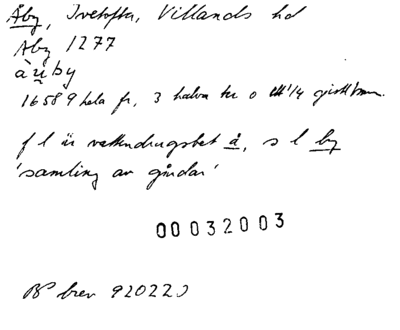 Åby, Ivetofta, Villands hd
Aby 1277
àu̯by
1658 9 hela fr, 3 halva kr o ett 1/4
f l är vattendragsbet å, s l by
'samling av gårdar'
00032003
BP brev 920220